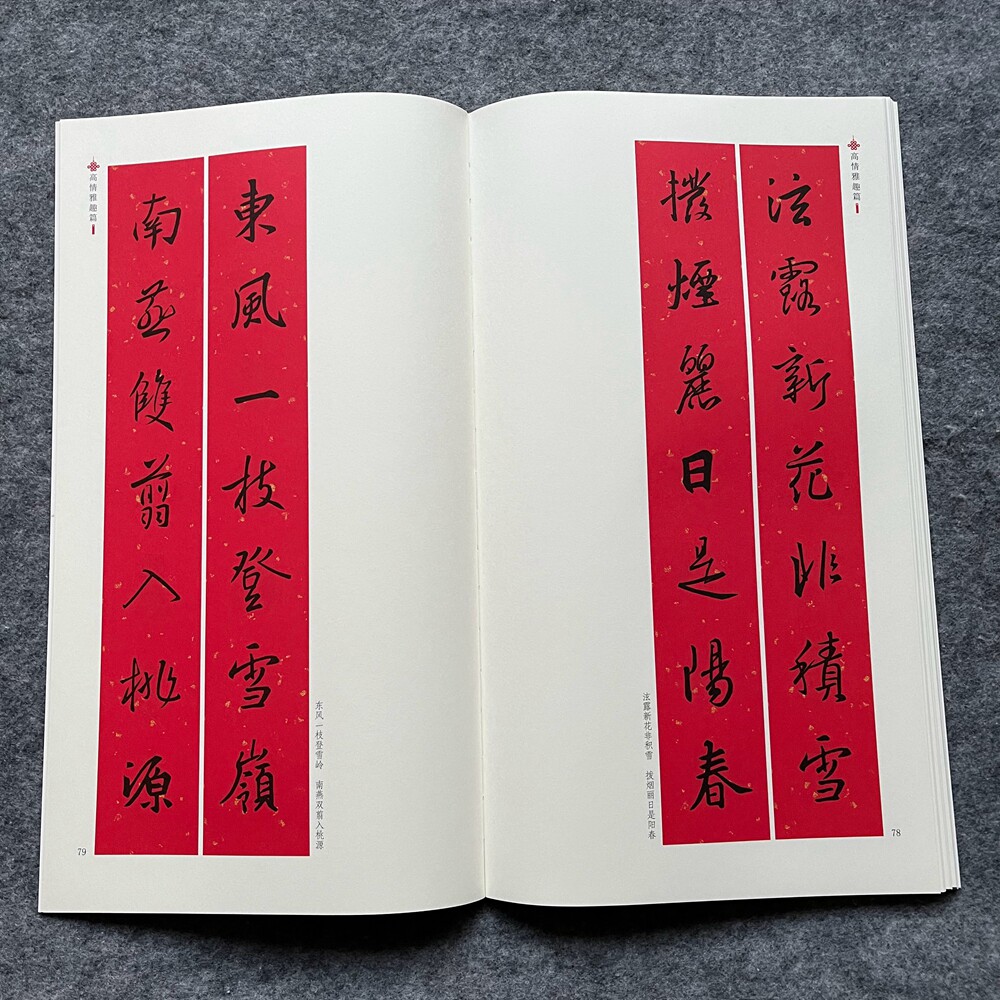 高情雅趣篇
泫露新花非積雪
撥煙麗日是陽春
泫露新花非积雪 拨烟丽日是阳春
78
東風一枝登雪嶺
南燕雙翦入桃源
东风一枝登雪岭 南燕双翦入桃源
高情雅趣篇
79